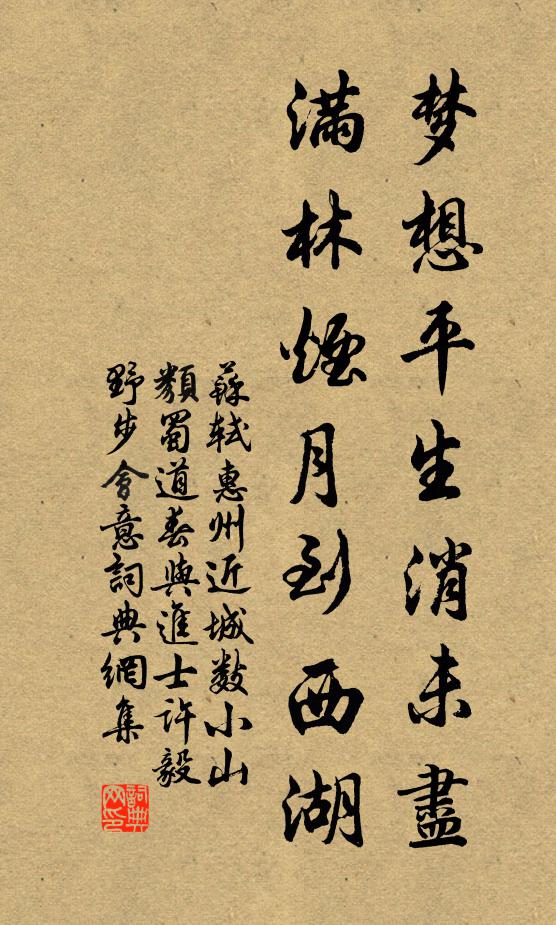 梦想平生消未盡
满林煙月到西湖
蘇軾惠州近城数小山
類蜀道春與進士許毅
野步會意詞典網集
詞典網印